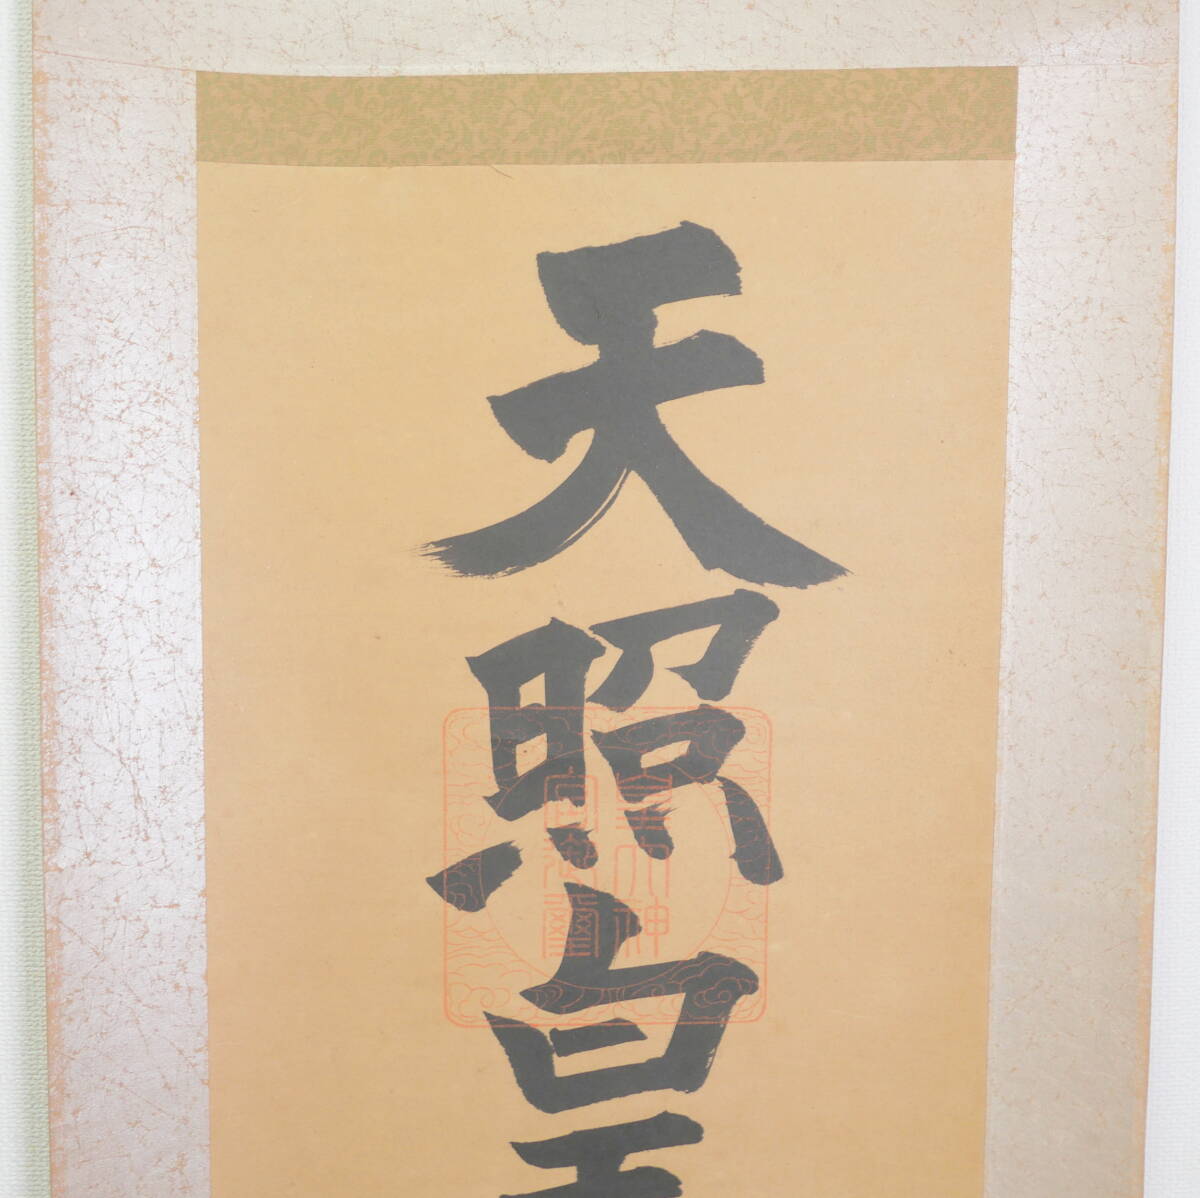 天照皇
皇大神
宮御璽